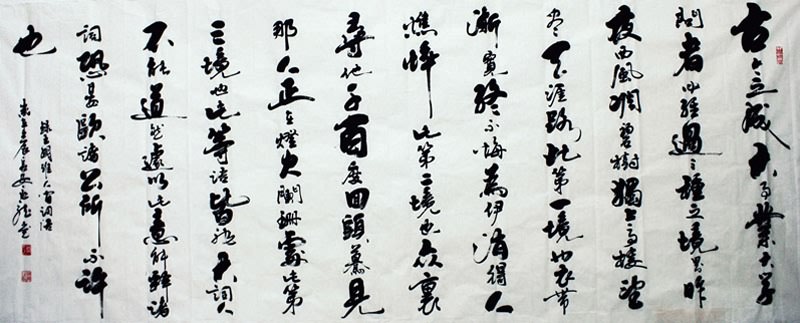 古今之成大事業大學
問者必經過三種之境界昨
夜西風凋碧樹獨上高樓望
盡天涯路此第一境也衣帶
漸寬終不悔為伊消得人
憔悴此第二境也眾裏
尋他千百度回頭驀見
那人正在燈火闌珊處此第
三境也此等語皆非大詞人
不能道然遽以此意解釋諸
詞恐晏歐諸公所不許
也
錄王國維人間詞話